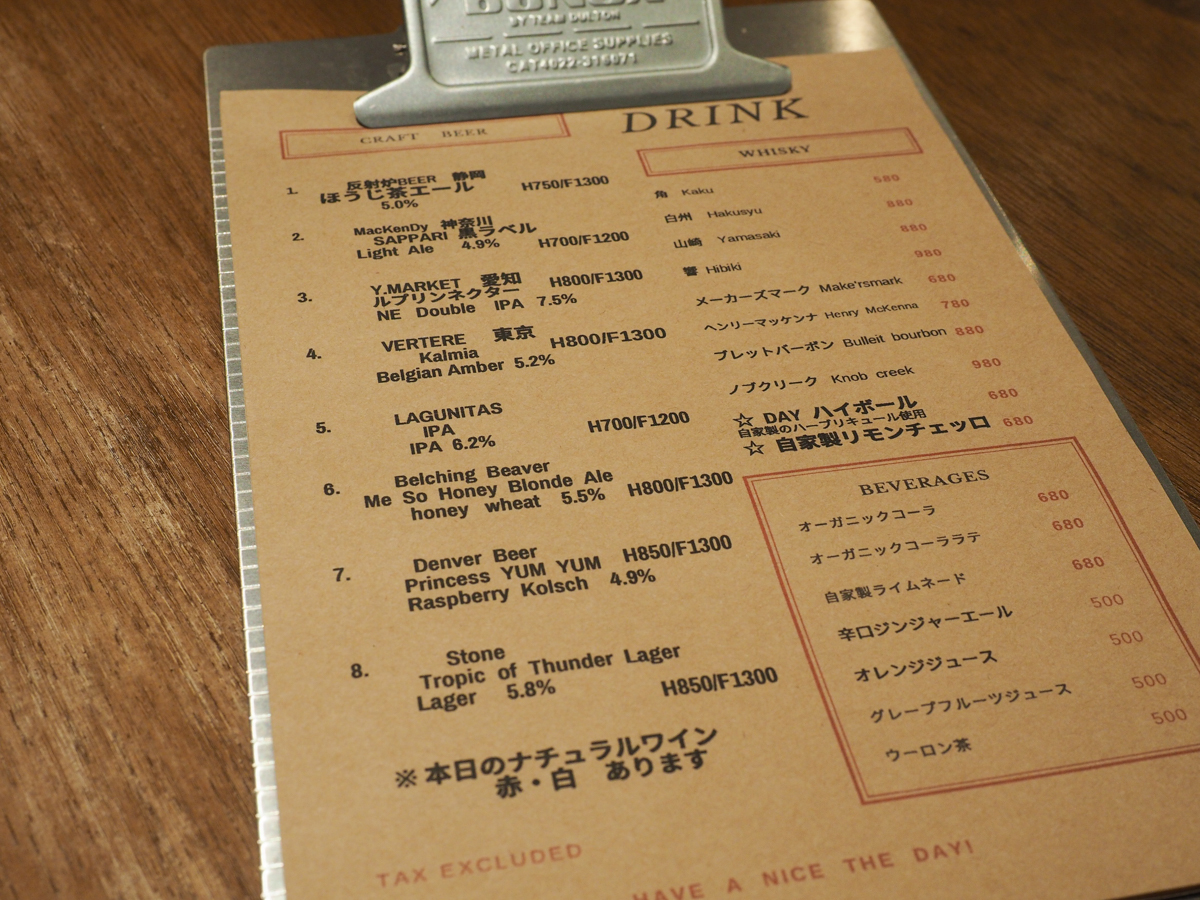 BY TEAM DULTON
METAL OFFICE SUPPLIES
DRINK
CRAFT BEER
1. 反射炉BEER 静岡
ほうじ茶エール H750/F1300
5.0%
2. MacKenDy 神奈川
SAPPARI 黒ラベル
Light Ale 4.9% H700/F1200
3. Y.MARKET 愛知 H800/F1300
ルプリンネクター
NE Double IPA 7.5%
4. VERTERE 東京 H800/F1300
Kalmia
Belgian Amber 5.2%
5. LAGUNITAS
IPA H700/F1200
IPA 6.2%
6. Belching Beaver
Me So Honey Blonde Ale H800/F1300
honey wheat 5.5%
7. Denver Beer H850/F1300
Princess YUM YUM
Raspberry Kolsch 4.9%
8. Stone
Tropic of Thunder Lager
Lager 5.8% H850/F1300
※本日のナチュラルワイン
赤・白 あります
WHISKY
角 Kaku 580
白州 Hakusyu 880
山崎 Yamasaki 880
響 Hibiki 980
メーカーズマーク Make'rsmark 680
ヘンリーマッケンナ Henry McKenna 780
ブレットバーボン Bulleit bourbon 880
ノブクリーク Knob creek 980
☆ DAY ハイボール 680
自家製のハーブリキュール使用
☆ 自家製リモンチェッロ 680
BEVERAGES
オーガニックコーラ 680
オーガニックコーララテ 680
自家製ライムネード 680
辛口ジンジャーエール 500
オレンジジュース 500
グレープフルーツジュース 500
ウーロン茶 500
TAX EXCLUDED
HAVE A NICE THE DAY!